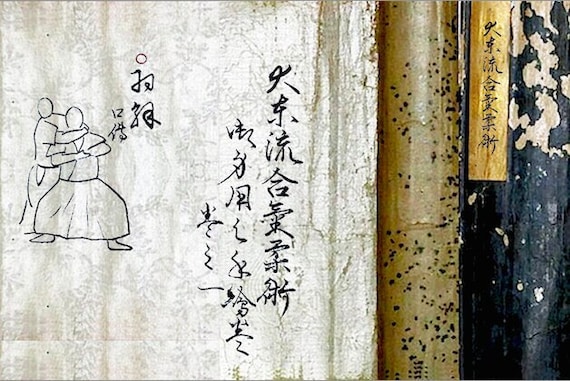 大東流合氣柔術
大東流合氣柔術
御身用之手繪巻
巻之一
口傳